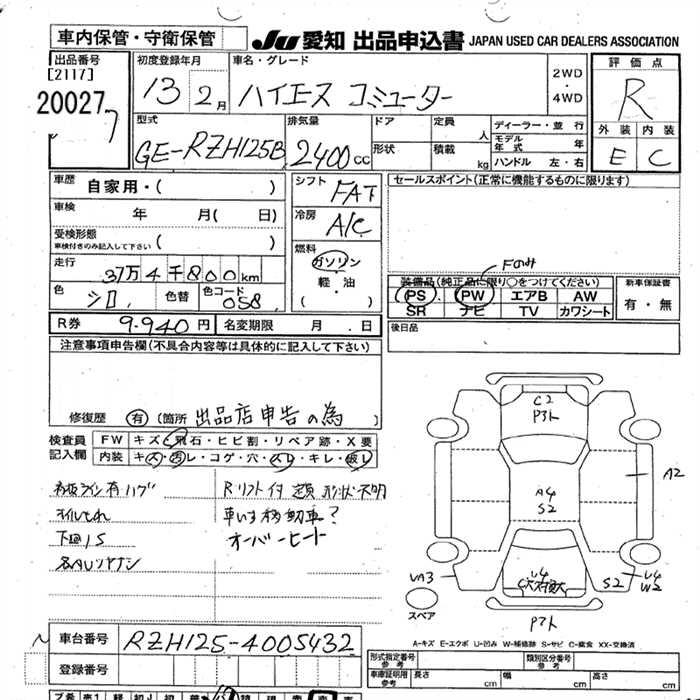 車内保管・守衛保管
JU 愛知 出品申込書 JAPAN USED CAR DEALERS ASSOCIATION
出品番号
[2117]
20027
7
初度登録年月
13 2月
車名・グレード
ハイエース コミューター
2WD
・
4WD
評価点
R
外装 内装
E C
型式
GE-RZH125B
排気量
2400cc
ドア
形状
定員 人
積載 kg
ディーラー・並行
モデル年式 年
ハンドル 左・右
車歴
自家用・( )
車検
年 月( 日)
受検形態
車検付きのみ記入して下さい
( )
走行
37万4千800km
色
シロ
色替
色コード
058
シフト
FAT
冷房
A/C
燃料
ガソリン
・
軽・油
( )
セールスポイント(正常に機能するものに限ります)
Fのみ
装備品(純正品に限り○をつけてください)
PS PW エアB AW
SR ナビ TV カワシート
新車保証書
有・無
R券 9.940円
名変期限 月 日
後日品
注意事項申告欄(不具合内容等は具体的に記入して下さい)
修復歴 有(箇所 出品店申告の為 )
検査員
記入欄
FW キズ・飛石・ヒビ割・リペア跡・X要
内装 キズ・汚レ・コゲ・穴・スレ・キレ・破レ
オイルもれ
下回りS
Rリフト付 定員 形状不明
車いす移動車?
オーバーヒート
C2
P3ト
A2
A4
S2
U4
S2
U4
W2
UA3
スペア
P2ト
A-キズ E-エクボ U-凹み W-補修跡 S-サビ C-腐食 XX-交換済
車台番号
RZH125-4005432
登録番号
形式指定番号
参考
類別区分番号
参考
車庫証明用
参考
長さ cm
幅 cm
高さ cm